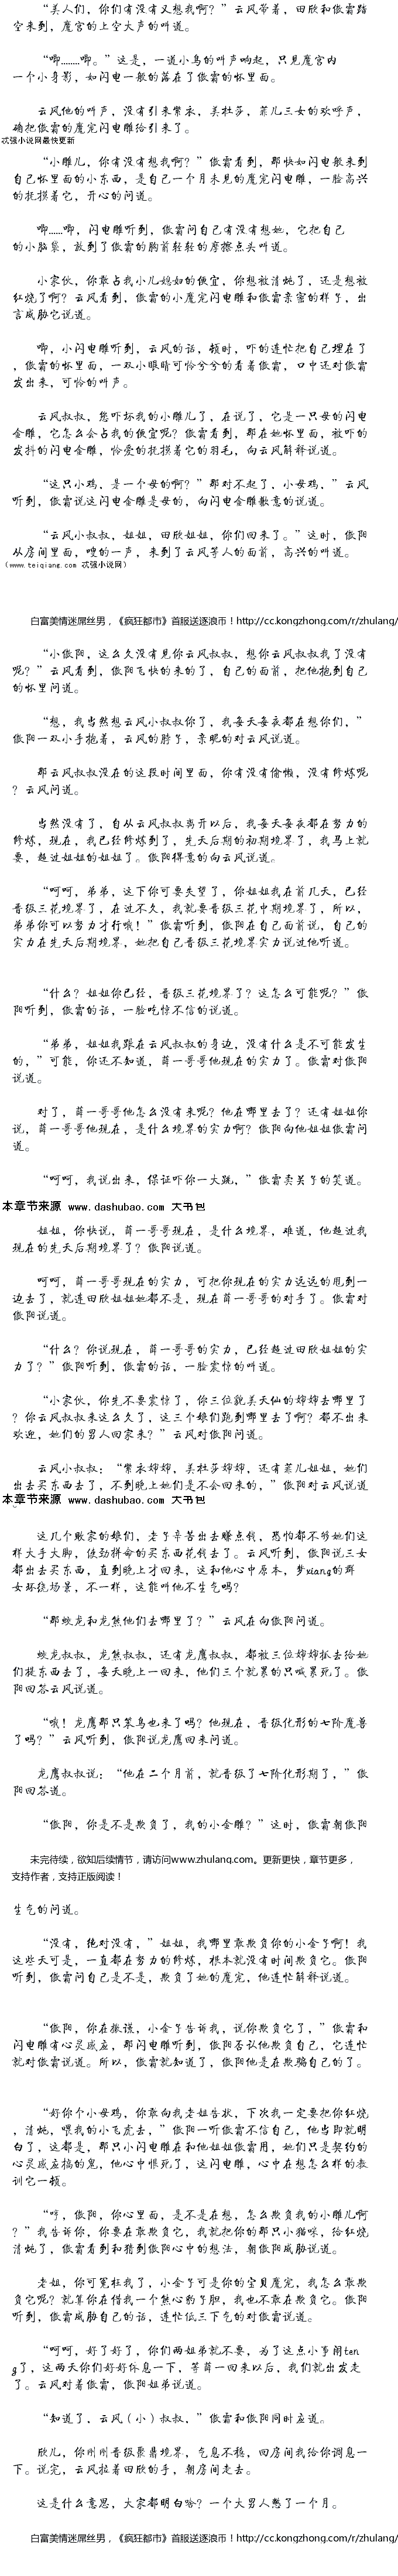 “美人们，你们有没有又想我啊？”云风带着，田欣和傲霜踏
空来到，魔宫的上空大声的叫道。
“唧……..唧。”这是，一道小鸟的叫声响起，只见魔宫内
一个小身影，如闪电一般的落在了傲霜的怀里面。
云风他的叫声，没有引来紫衣，美杜莎，菲儿三女的欢呼声，
确把傲霜的魔宠闪电雕给引来了。
忒强小说网最快更新
“小雕儿，你有没有想我啊？”傲霜看到，那快如闪电般来到
自己怀里面的小东西，是自己一个月未见的魔宠闪电雕，一脸高兴
的抚摸着它，开心的问道。
唧……唧，闪电雕听到，傲霜问自己有没有想她，它把自己
的小脑袋，放到了傲霜的胸前轻轻的摩擦点头叫道。
小家伙，你敢占我小儿媳妇的便宜，你想被清炖了，还是想被
红烧了啊？云风看到，傲霜的小魔宠闪电雕和傲霜亲密的样子，出
言威胁它说道。
唧，小闪电雕听到，云风的话，顿时，吓的连忙把自己埋在了
，傲霜的怀里面，一双小眼睛可怜兮兮的看着傲霜，口中还对傲霜
发出来，可怜的叫声。
云风叔叔，您吓坏我的小雕儿了，在说了，它是一只母的闪电
金雕，它怎么会占我的便宜呢？傲霜看到，那在她怀里面，被吓的
发抖的闪电金雕，怜爱的抚摸着它的羽毛，向云风解释说道。
“这只小鸡，是一个母的啊？”那对不起了，小母鸡，”云风
听到，傲霜说这闪电金雕是母的，向闪电金雕歉意的说道。
“云风小叔叔，姐姐，田欣姐姐，你们回来了。”这时，傲阳
从房间里面，嗖的一声，来到了云风等人的面前，高兴的叫道。
（www.teiqiang.com 忒强小说网）
白富美情迷屌丝男，《疯狂都市》首服送逐浪币！http://cc.kongzhong.com/r/zhulang/
“小傲阳，这么久没有见你云风叔叔，想你云风叔叔我了没有
呢？”云风看到，傲阳飞快的来的了，自己的面前，把他抱到自己
的怀里问道。
“想，我当然想云风小叔叔你了，我每天每夜都在想你们，”
傲阳一双小手抱着，云风的脖子，亲昵的对云风说道。
那云风叔叔没在的这段时间里面，你有没有偷懒，没有修炼呢
？云风问道。
当然没有了，自从云风叔叔离开以后，我每天每夜都在努力的
修炼，现在，我已经修炼到了，先天后期的初期境界了，我马上就
要，超过姐姐的姐姐了。傲阳得意的向云风说道。
“呵呵，弟弟，这下你可要失望了，你姐姐我在前几天，已经
晋级三花境界了，在过不久，我就要晋级三花中期境界了，所以，
弟弟你可以努力才行哦！”傲霜听到，傲阳在自己面前说，自己的
实力在先天后期境界，她把自己晋级三花境界实力说过他听道。
“什么？姐姐你已经，晋级三花境界了？这怎么可能呢？”傲
阳听到，傲霜的话，一脸吃惊不信的说道。
“弟弟，姐姐我跟在云风叔叔的身边，没有什么是不可能发生
的，”可能，你还不知道，萌一哥哥他现在的实力了。傲霜对傲阳
说道。
对了，萌一哥哥他怎么没有来呢？他在哪里去了？还有姐姐你
说，萌一哥哥他现在，是什么境界的实力啊？傲阳向他姐姐傲霜问
道。
“呵呵，我说出来，保证吓你一大跳，”傲霜卖关子的笑道。
本章节来源 www.dashubao.com 大书包
姐姐，你快说，萌一哥哥现在，是什么境界，难道，他超过我
现在的先天后期境界了？傲阳说道。
呵呵，萌一哥哥现在的实力，可把你现在的实力远远的甩到一
边去了，就连田欣姐姐她都不是，现在萌一哥哥的对手了。傲霜对
傲阳说道。
“什么？你说现在，萌一哥哥的实力，已经超过田欣姐姐的实
力了？”傲阳听到，傲霜的话，一脸震惊的叫道。
“小家伙，你先不要震惊了，你三位貌美天仙的婶婶去哪里了
？你云风叔叔来这么久了，这三个娘们跑到哪里去了啊？都不出来
欢迎，她们的男人回家来？”云风对傲阳问道。
云风小叔叔：“紫衣婶婶，美杜莎婶婶，还有菲儿姐姐，她们
出去买东西去了，不到晚上她们是不会回来的，”傲阳对云风说道
本章节来源 www.dashubao.com 大书包
。
这几个败家的娘们，老子辛苦出去赚点钱，恐怕都不够她们这
样大手大脚，使劲拼命的买东西花钱去了。云风听到，傲阳说三女
都出去买东西，直到晚上才回来，这和他心中原本，梦xiang的群
女环绕场景，不一样，这能叫他不生气吗？
“那蛟龙和龙熊他们去哪里了？”云风在向傲阳问道。
蛟龙叔叔，龙熊叔叔，还有龙鹰叔叔，都被三位婶婶抓去给她
们提东西去了，每天晚上一回来，他们三个就累的只喊累死了。傲
阳回答云风说道。
“哦！龙鹰那只笨鸟也来了吗？他现在，晋级化形的七阶魔兽
了吗？”云风听到，傲阳说龙鹰回来问道。
龙鹰叔叔说：“他在二个月前，就晋级了七阶化形期了，”傲阳
回答道。
“傲阳，你是不是欺负了，我的小金雕？”这时，傲霜朝傲阳
未完待续，欲知后续情节，请访问www.zhulang.com。更新更快，章节更多，
支持作者，支持正版阅读！
生气的问道。
“没有，绝对没有，”姐姐，我哪里敢欺负你的小金子啊！我
这些天可是，一直都在努力的修炼，根本就没有时间欺负它。傲阳
听到，傲霜问自己是不是，欺负了她的魔宠，他连忙解释说道。
“傲阳，你在撒谎，小金子告诉我，说你欺负它了，”傲霜和
闪电雕有心灵感应，那闪电雕听到，傲阳否认他欺负自己，它连忙
就对傲霜说道。所以，傲霜就知道了，傲阳他是在欺骗自己的了。
“好你个小母鸡，你敢向我老姐告状，下次我一定要把你红烧
，清炖，喂我的小飞虎去，”傲阳一听傲霜不信自己，他当即就明
白了，这都是，那只小闪电雕在和他姐姐傲霜用，她们只是契约的
心灵感应搞的鬼，他心中恨死了，这闪电雕，心中在想怎么样的教
训它一顿。
“哼，傲阳，你心里面，是不是在想，怎么欺负我的小雕儿啊
？”我告诉你，你要在敢欺负它，我就把你的那只小猫咪，给红烧
清炖了，傲霜看到和猜到傲阳心中的想法，朝傲阳威胁说道。
老姐，你可冤枉我了，小金子可是你的宝贝魔宠，我怎么敢欺
负它呢？就算你在借我一个熊心豹子胆，我也不敢在欺负它。傲阳
听到，傲霜威胁自己的话，连忙低三下气的对傲霜说道。
“呵呵，好了好了，你们两姐弟就不要，为了这点小事闹ten
g了，这两天你们好好休息一下，等萌一回来以后，我们就出发走
了。云风对着傲霜，傲阳姐弟说道。
“知道了，云风（小）叔叔，”傲霜和傲阳同时应道。
欣儿，你刚刚晋级聚鼎境界，气息不稳，回房间我给你调息一
下。说完，云风拉着田欣的手，朝房间走去。
这是什么意思，大家都明白啥？一个大男人憋了一个月。
白富美情迷屌丝男，《疯狂都市》首服送逐浪币！http://cc.kongzhong.com/r/zhulang/